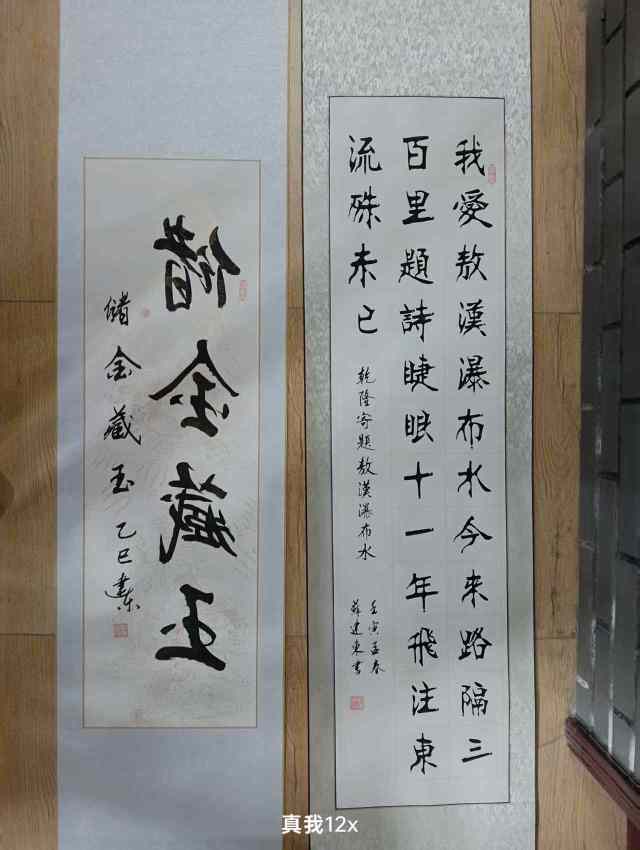 我愛敖漢瀑布水今来路隔三
百里題詩睫眼十一年飛注東
流殊未已
乾隆寄題敖漢瀑布水
壬寅孟春
薛建東書
储金藏玉
储金藏玉 乙巳建东
真我12x